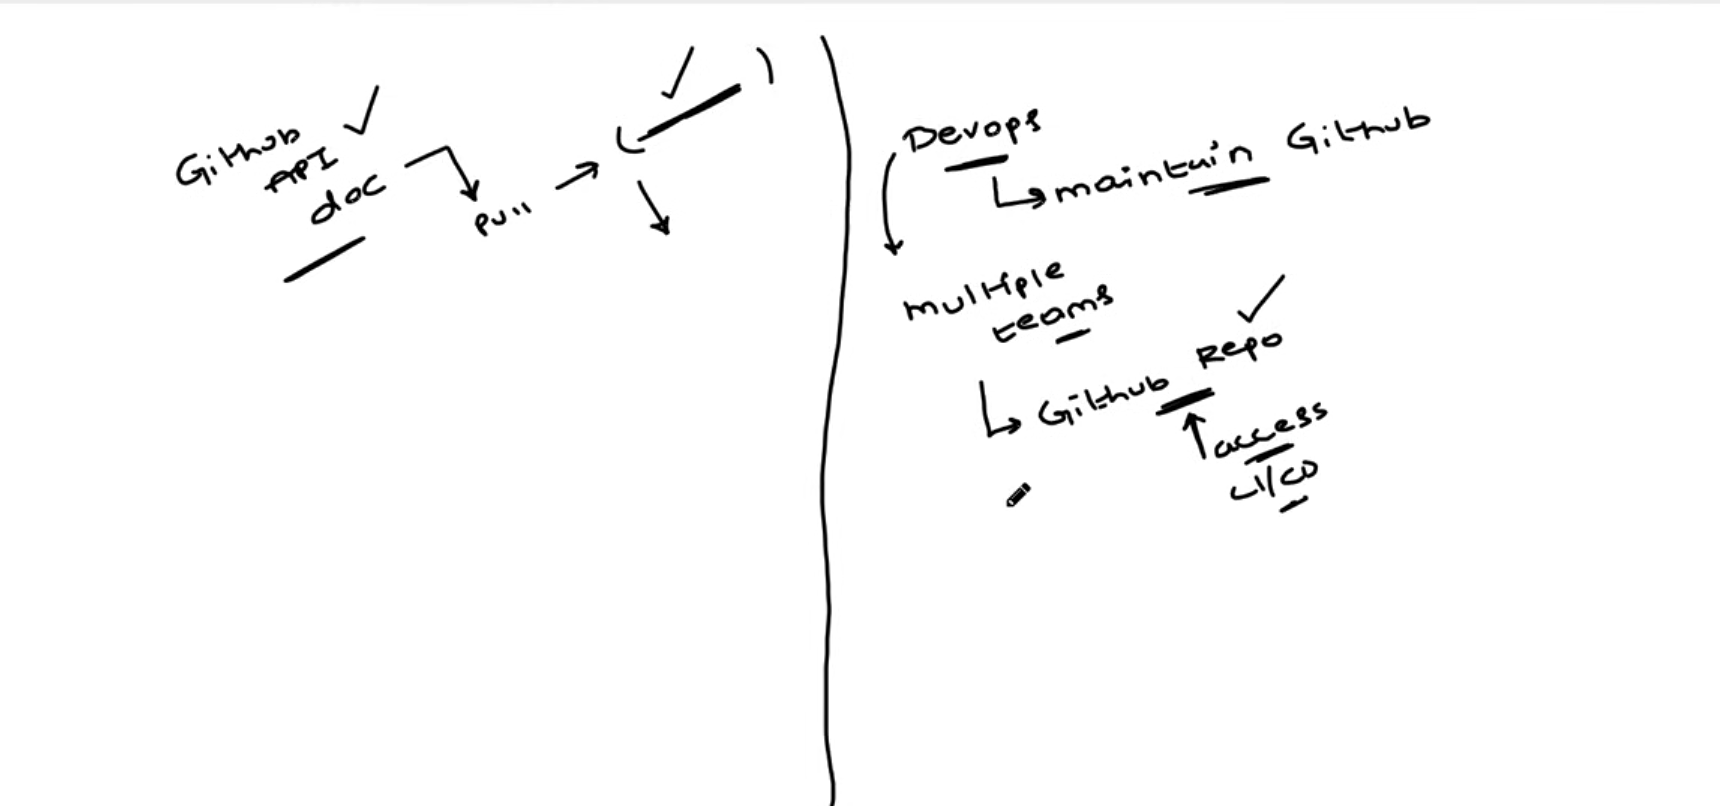 Github
API
doc
Pull
Devops
maintain Github
multiple
teams
Github Repo
access
CI/CD